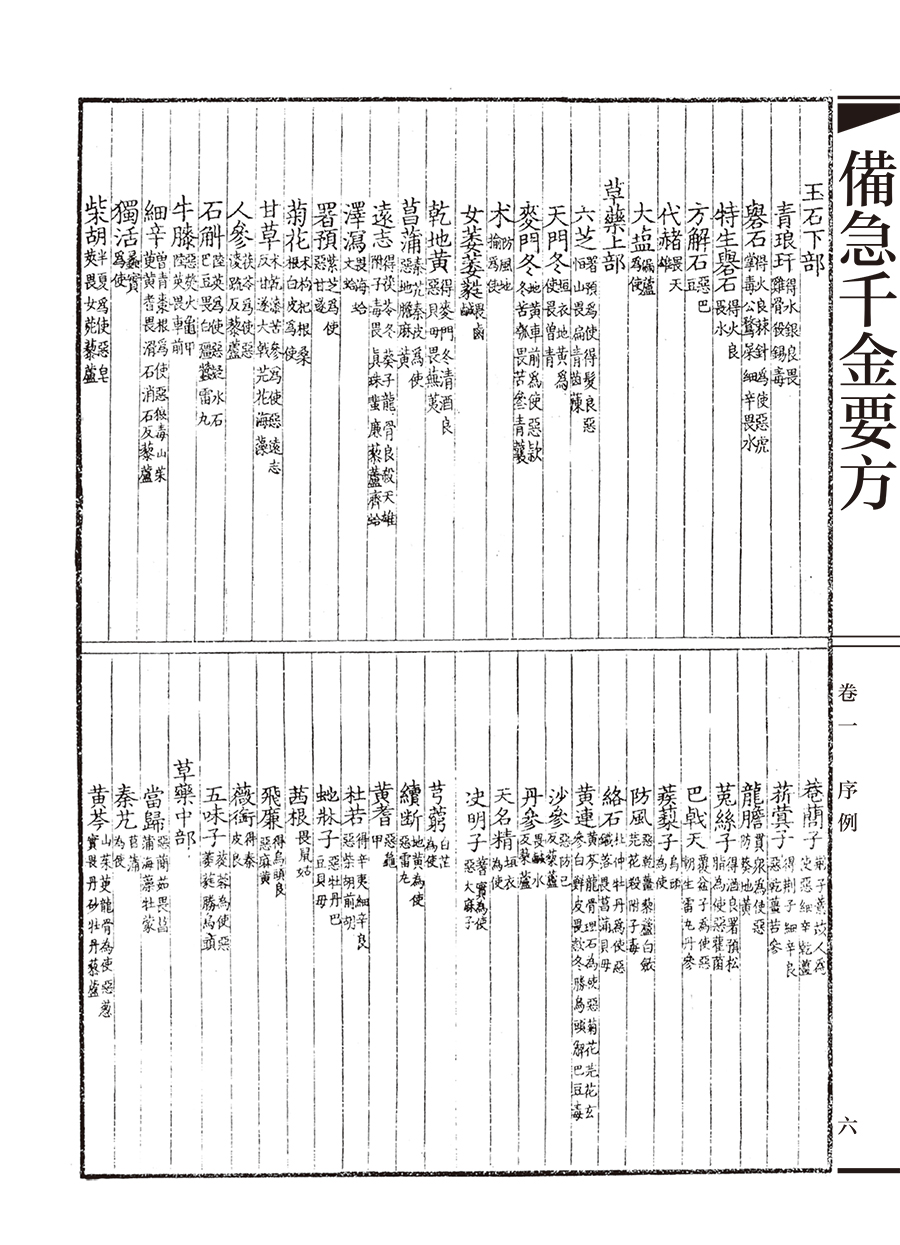 備急千金要方
卷一 序例
六
玉石下部
青琅玕 得水銀良畏雞骨殺錫毒
礜石 得火良棘針爲使惡虎掌毒公鶩屎細辛畏水
特生礜石 得火良畏水
方解石 惡巴豆
代赭 畏天雄
大塩 漏蘆爲使
草藥上部
六芝 署預爲使得髮良惡恒山畏扁青茵蔯
天門冬 垣衣地黃爲使畏曾青
麥門冬 地黃車前爲使惡款冬苦瓠畏苦參青蘘
术 防風地榆爲使
女萎萎蕤 畏鹵鹹
乾地黃 得麥門冬清酒良惡貝母畏蕪荑
菖蒲 秦艽秦皮爲使惡地膽麻黃
遠志 得茯苓冬葵子龍骨良殺天雄附子毒畏真珠蜚廉藜蘆齊蛤
澤瀉 畏海蛤文蛤
署預 紫芝爲使惡甘遂
菊花 术枸杞根桑根白皮爲使
甘草 术乾漆苦參爲使惡遠志反甘遂大戟芫花海藻
人參 茯苓爲使惡溲疏反藜蘆
石斛 陸英爲使惡凝水石巴豆畏白殭蠶雷丸
牛膝 惡熒火龜甲陸英畏車前
細辛 曾青棗根爲使惡狼毒山茱萸黃耆畏滑石消石反藜蘆
獨活 蠡實爲使
柴胡 半夏爲使惡皂莢畏女菀藜蘆
菴䕡子 荊子薏苡人爲使惡細辛乾薑
菥蓂子 得荊子細辛良惡乾薑苦參
龍膽 貫衆為使惡防葵地黃
菟絲子 得酒良署預松脂為使惡雚菌
巴戟天 覆盆子為使惡朝生雷丸丹參
蒺䔧子 烏頭為使
防風 惡乾薑藜蘆白蘞芫花殺附子毒
絡石 杜仲牡丹爲使惡鐵落畏菖蒲貝母
黃連 黃芩龍骨理石為使惡菊花芫花玄參白鮮皮畏款冬勝烏頭解巴豆毒
沙參 惡防己反藜蘆
丹參 畏鹹水反藜蘆
天名精 垣衣為使
决明子 蓍實為使惡大麻子
芎藭 白芷為使
續斷 地黃為使惡雷丸
黃耆 惡龜甲
杜若 得辛夷細辛良惡柴胡前胡
虵牀子 惡牡丹巴豆貝母
茜根 畏鼠姑
飛廉 得烏頭良惡麻黃
薇銜 得秦皮良
五味子 蓯蓉為使惡萎蕤勝烏頭
草藥中部
當歸 惡䕡茹畏菖蒲海藻牡蒙
秦艽 菖蒲為使
黃芩 山茱萸龍骨為使惡葱實畏丹砂牡丹藜蘆